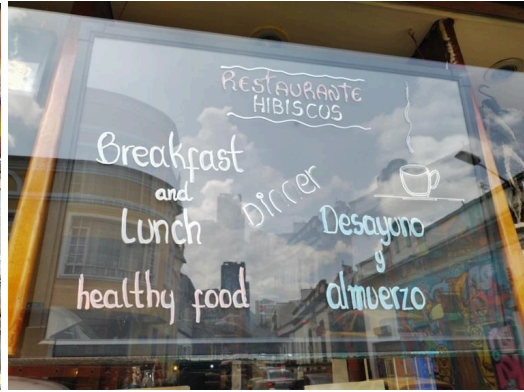 RESTAURANTE
HIBISCUS
Breakfast
and
Lunch
Dinner
healthy food
Desayuno
y
almuerzo